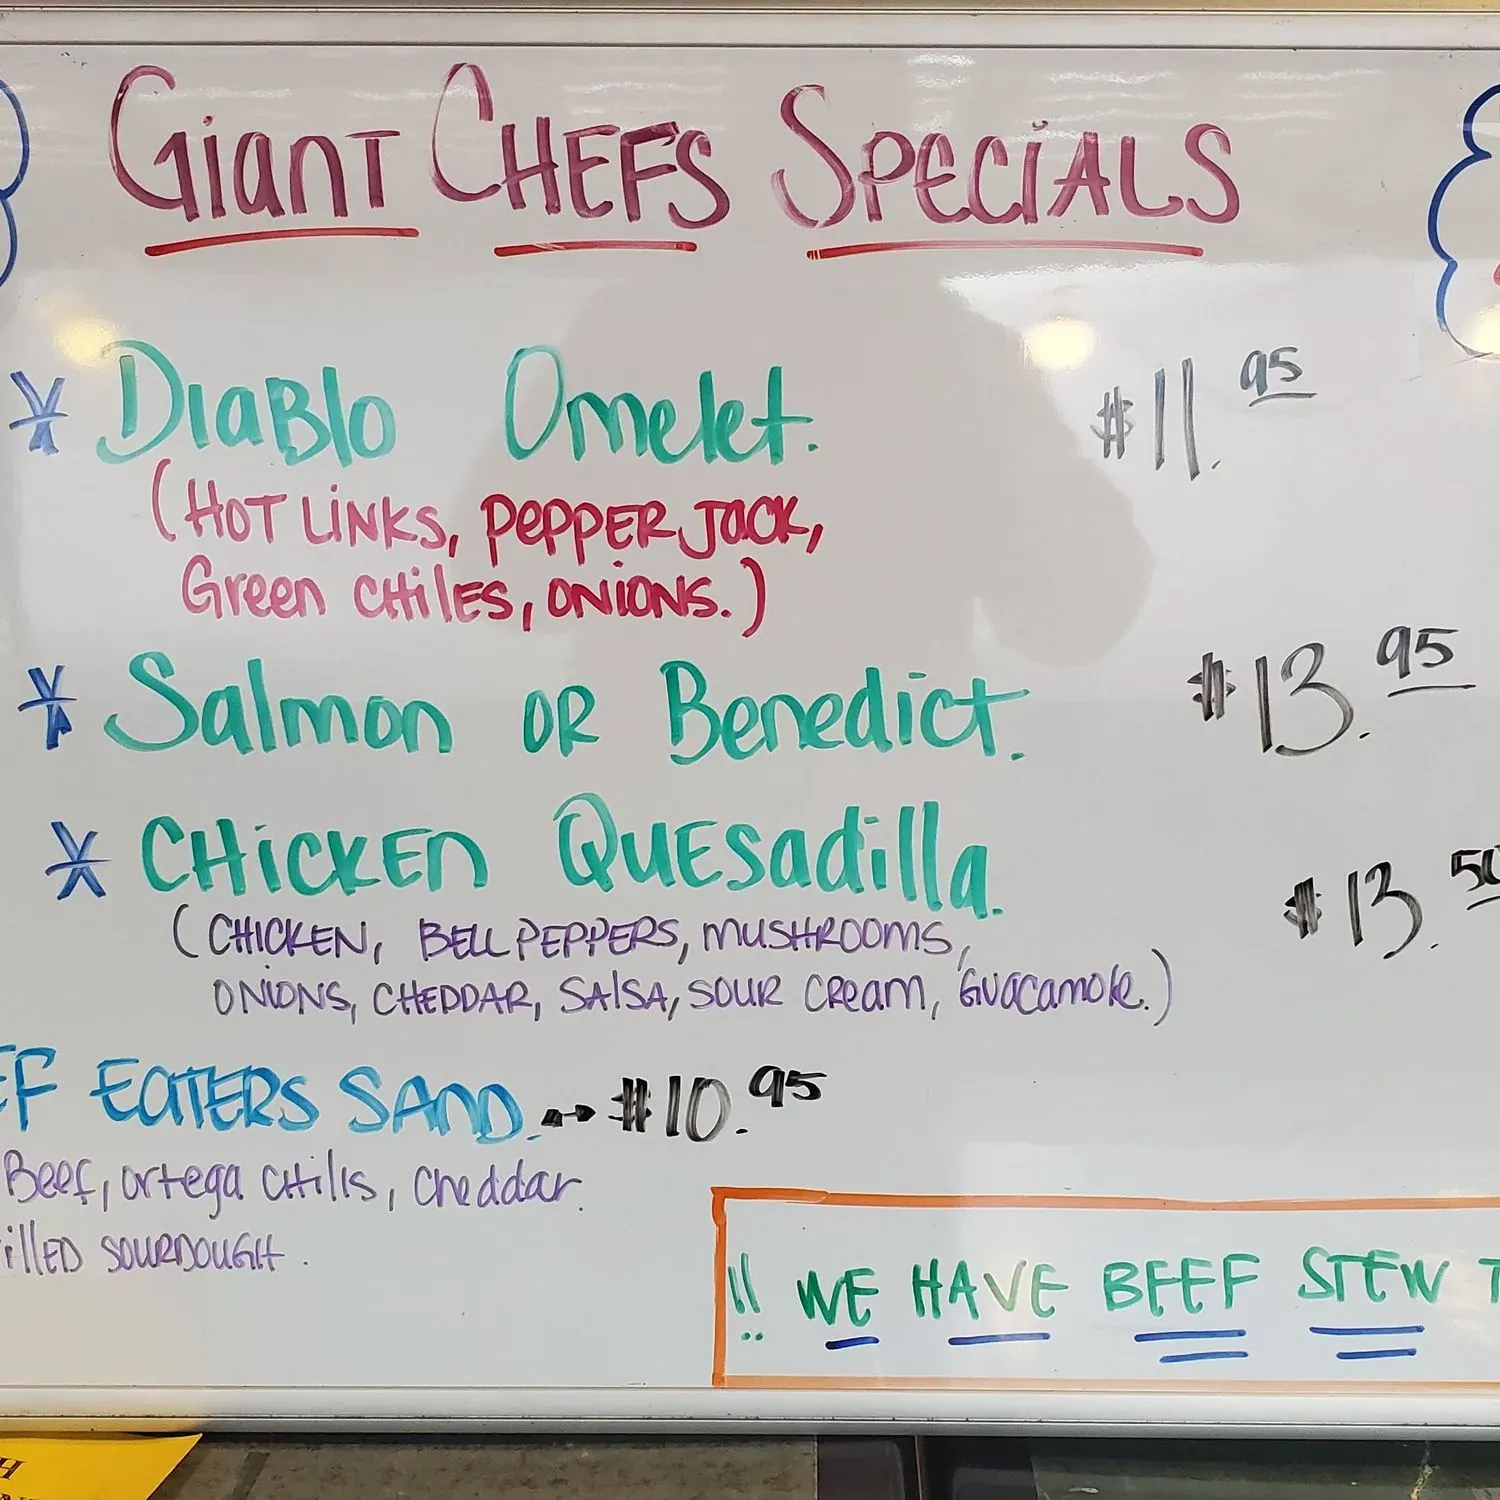 GiANT CHEF'S SPECiALS
DiaBlo Omelet. $11.95
(HOT LiNKS, PEPPER JACK,
Green CHiLES, ONiONS.)
Salmon OR Benedict. $13.95
CHiCKEN QUESadilla. $13.50
(CHICKEN, BELL PEPPERS, MUSHROOMS,
ONIONS, CHEDDAR, SALSA, SOUR CREAM, GUACAMOLE.)
EF EATERS SAND. $10.95
Beef, ortega CHilis, Cheddar.
illED SOURDOUGH.
!! WE HAVE BEEF STEW T
H